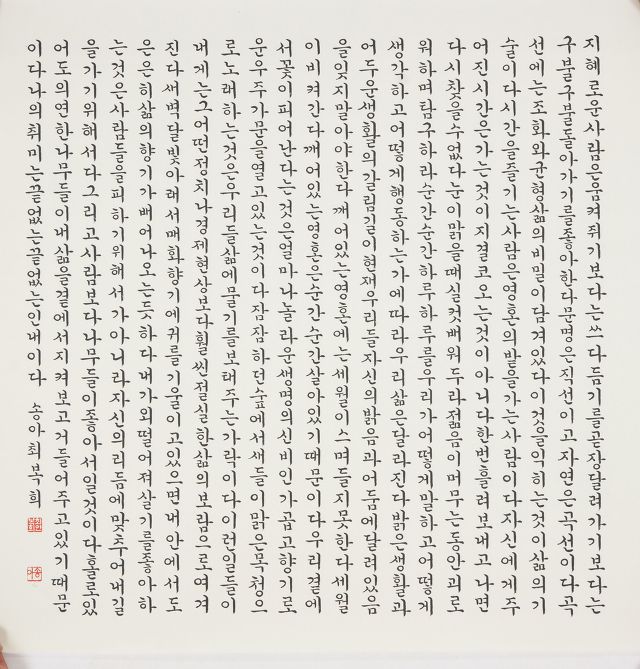 지혜로운사람은움켜쥐기보다는쓰다듬기를곧장달려가기보다는
구불구불돌아가기를좋아한다문명은직선이고자연은곡선이다곡
선에는조화와균형삶의비밀이담겨있다이것을익히는것이삶의기
술이다시간을즐기는사람은영혼의밭을가는사람이다자신에게주
어진시간은가는것이지결코오는것이아니다한번흘려보내고나면
다시찾을수없다눈이맑을때실컷배워두라젊음이머무는동안괴로
워하며탐구하라순간순간하루하루를우리가어떻게말하고어떻게
생각하고어떻게행동하는가에따라우리삶은달라진다밝은생활과
어두운생활의갈림길이현재우리들자신의밝음과어둠에달려있음
을잊지말아야한다깨어있는영혼에는세월이스며들지못한다세월
이비켜간다깨어있는영혼은순간순간살아있기때문이다우리곁에
서꽃이피어난다는것은얼마나놀라운생명의신비인가곱고향기로
운우주가문을열고있는것이다잠잠하던숲에서새들이맑은목청으
로노래하는것은우리들삶에물기를보태주는가락이다이런일들이
내게는그어떤정치나경제현상보다훨씬절실한삶의보람으로여겨
진다새벽달빛아래서매화향기에귀를기울이고있으면내안에서도
은은히삶의향기가배어나오는듯하다내가외떨어져살기를좋아하
는것은사람들을피하기위해서가아니라자신의리듬에맞추어내길
을가기위해서다그리고사람보다나무들이좋아서일것이다홀로있
어도의연한나무들이내삶을곁에서지켜보고거들어주고있기때문
이다나의취미는끝없는끝없는인내이다 송아최복희